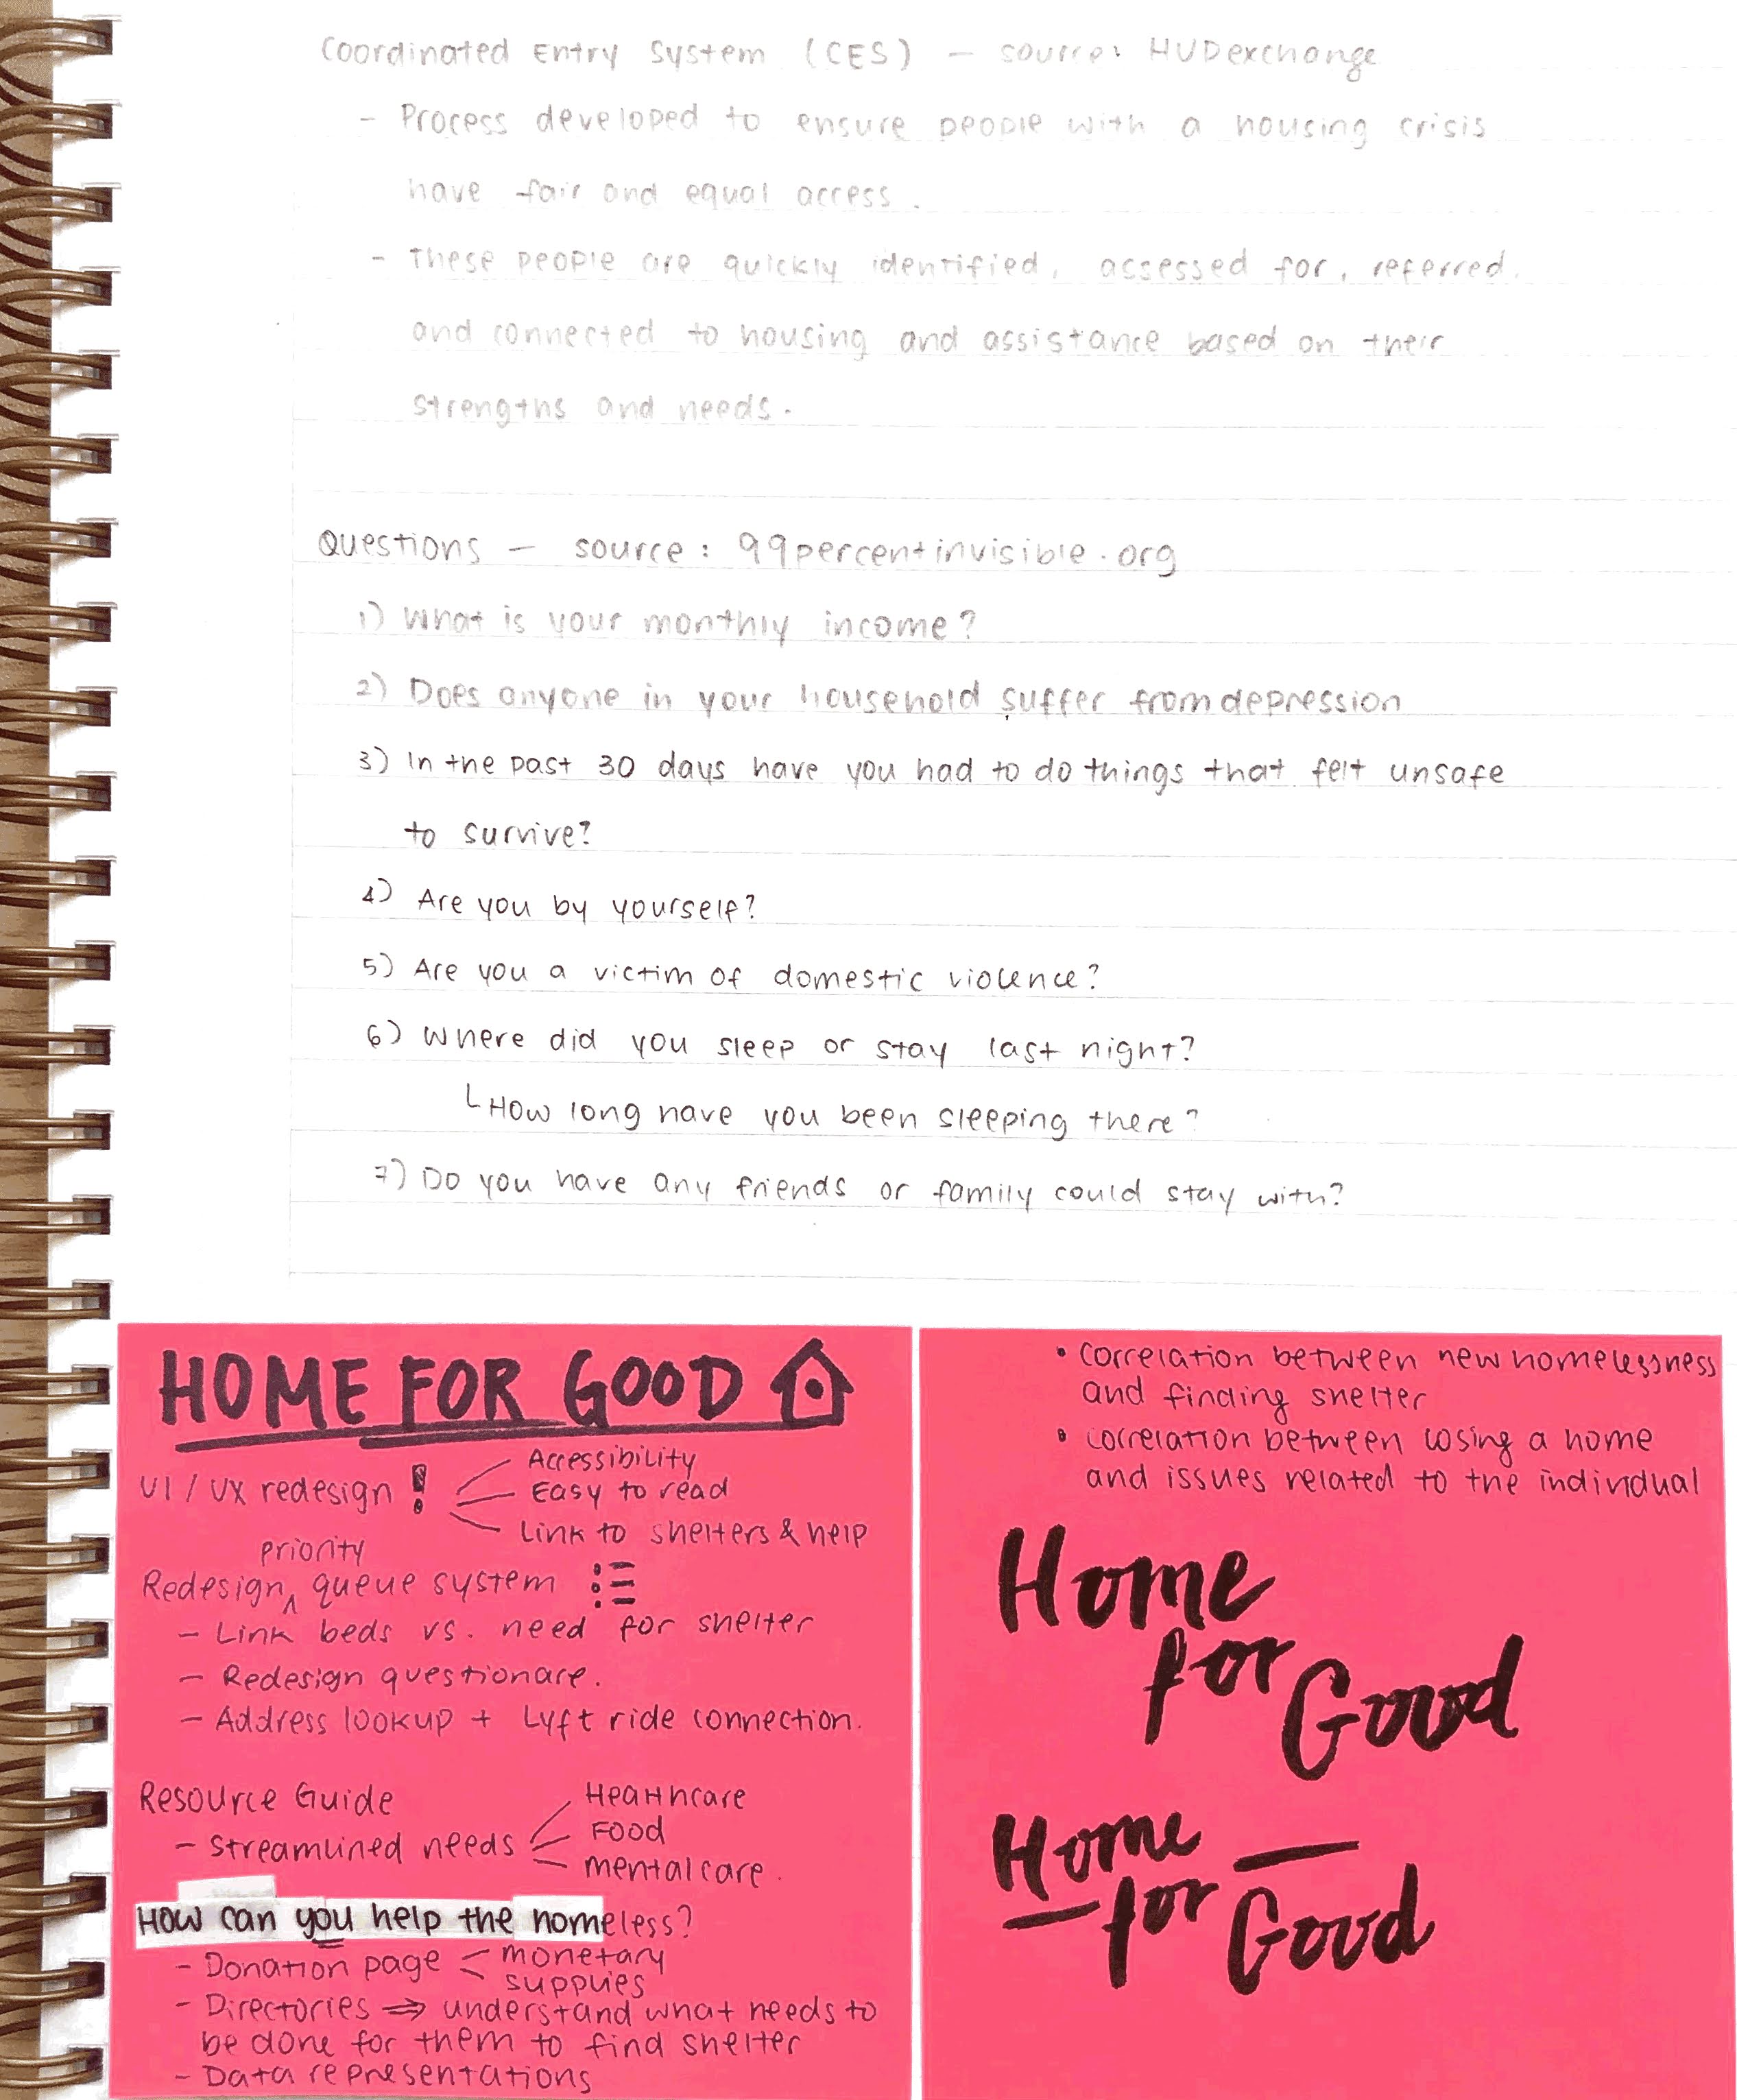 Coordinated Entry System (CES) — source: HUDexchange
- Process developed to ensure people with a housing crisis
have fair and equal access.
- These people are quickly identified, assessed for, referred,
and connected to housing and assistance based on their
strengths and needs.
Questions — source: 99percentinvisible.org
1) What is your monthly income?
2) Does anyone in your household suffer from depression
3) In the past 30 days have you had to do things that felt unsafe
to survive?
4) Are you by yourself?
5) Are you a victim of domestic violence?
6) Where did you sleep or stay last night?
How long have you been sleeping there?
7) Do you have any friends or family could stay with?
HOME FOR GOOD
UI / UX redesign !
Accessibility
Easy to read
Link to shelters & help
priority
Redesign ^ queue system
- Link beds vs. need for shelter
- Redesign questionare.
- Address lookup + Lyft ride connection.
Resource Guide
- streamlined needs
Healthcare
Food
mental care.
How can you help the homeless?
- Donation page
monetary
supplies
- Directories ⇒ understand what needs to
be done for them to find shelter
- Data representations
• correlation between new homelessness
and finding shelter
• correlation between losing a home
and issues related to the individual
Home
for
Good
Home
for
Good